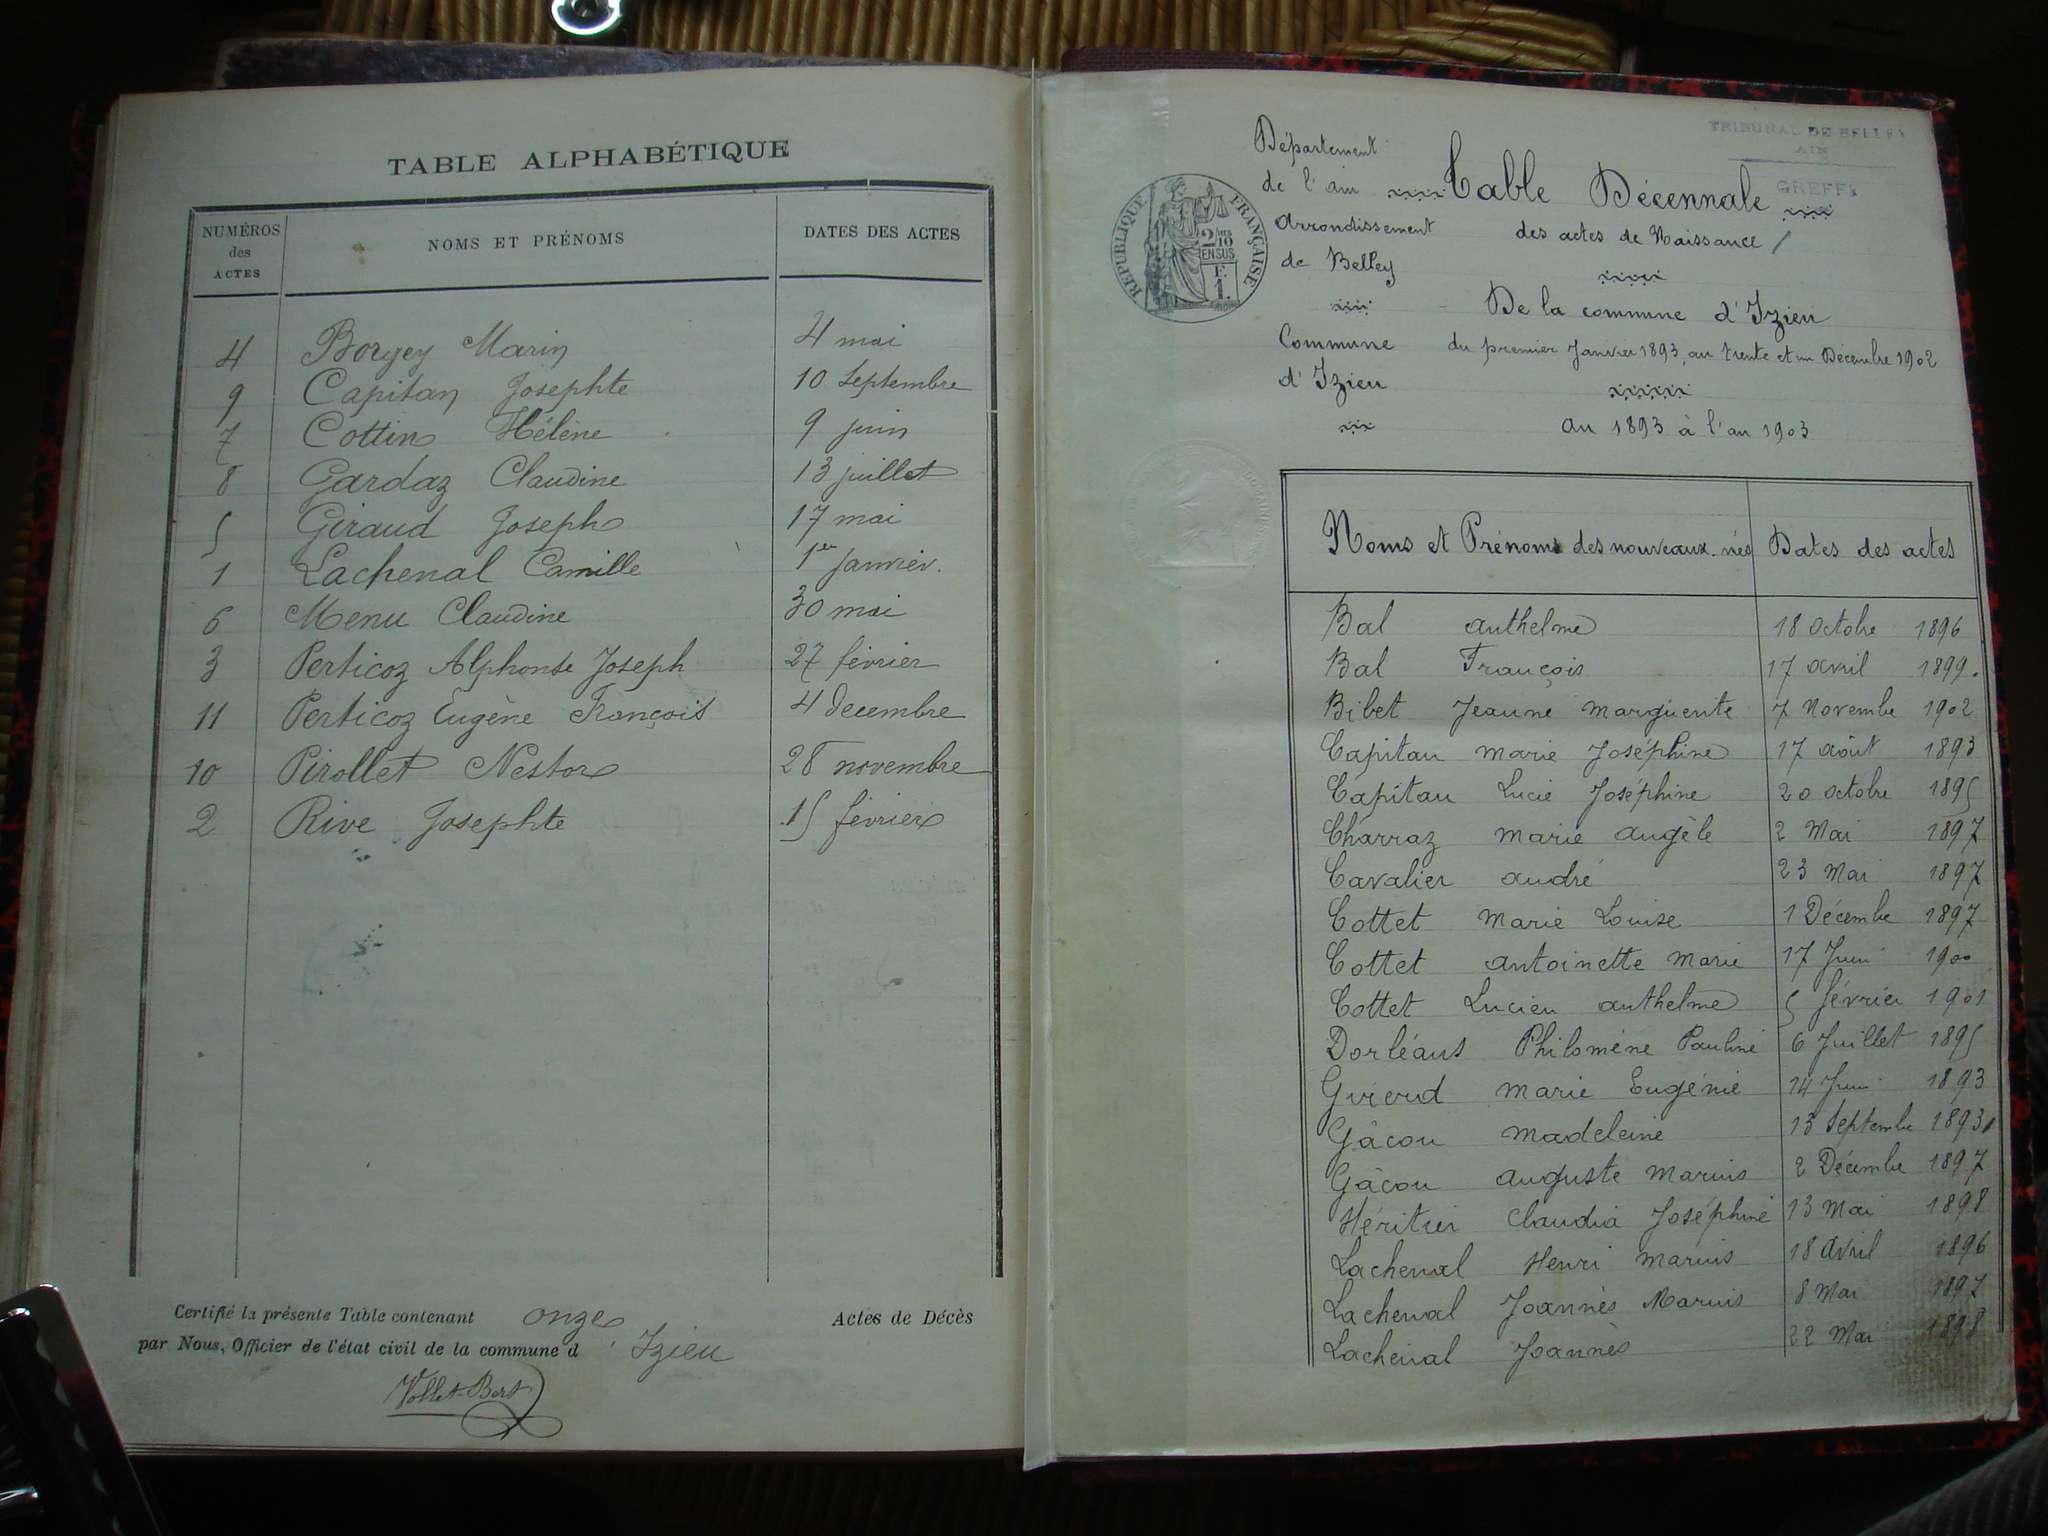 TABLE ALPHABÉTIQUE
NUMÉROS des ACTES NOMS ET PRÉNOMS DATES DES ACTES
4 Borgey Marin 4 mai
9 Capitan Josephte 10 Septembre
7 Cottin Hélène 9 juin
8 Gardaz Claudine 13 juillet
5 Giraud Joseph 17 mai
1 Lachenal Camille 1er Janvier.
6 Menu Claudine 30 mai
3 Perticoz Alphonse Joseph 27 février
11 Perticoz Eugène François 4 decembre
10 Pirollet Nestor 28 novembre
2 Rive Josephte 15 février
Certifié la présente Table contenant onze Actes de Décès
par Nous, Officier de l'état civil de la commune d'Izieu
Vollet-Bert
TRIBUNAL DE BELLEY
AIN
GREFFE
Département
de l'ain
arrondissement
de Belley
Commune
d'Izieu
RÉPUBLIQUE FRANÇAISE
2/10 EN SUS
F.
1.
Table Décennale
des actes de Naissance
De la commune d'Izieu
du premier Janvier 1893, au trente et un Décembre 1902
an 1893 à l'an 1903
Noms et Prénoms des nouveaux-nés Dates des actes
Bal anthelme 18 octobre 1896
Bal François 17 avril 1899.
Bibet Jeanne marguerite 7 Novembre 1902
Capitan marie Joséphine 17 août 1893
Capitan Lucie Joséphine 20 octobre 1895
Charraz marie angèle 2 Mai 1897
Cavalier andré 23 Mai 1897
Cottet Marie Louise 1 Décembre 1897
Cottet antoinette Marie 17 Juin 1900
Cottet Lucien anthelme 5 février 1901
Dorléans Philomène Pauline 6 Juillet 1895
marie Eugénie 14 Juin 1893
Gâcon madeleine 13 Septembre 1893
Gâcon auguste Marius 2 Décembre 1897
Héritier Claudia Joséphine 13 Mai 1898
Lachenal Henri marius 18 avril 1896
Lachenal Joannès Marius 8 Mai 1897
Lachenal Joannès 22 Mai 1898